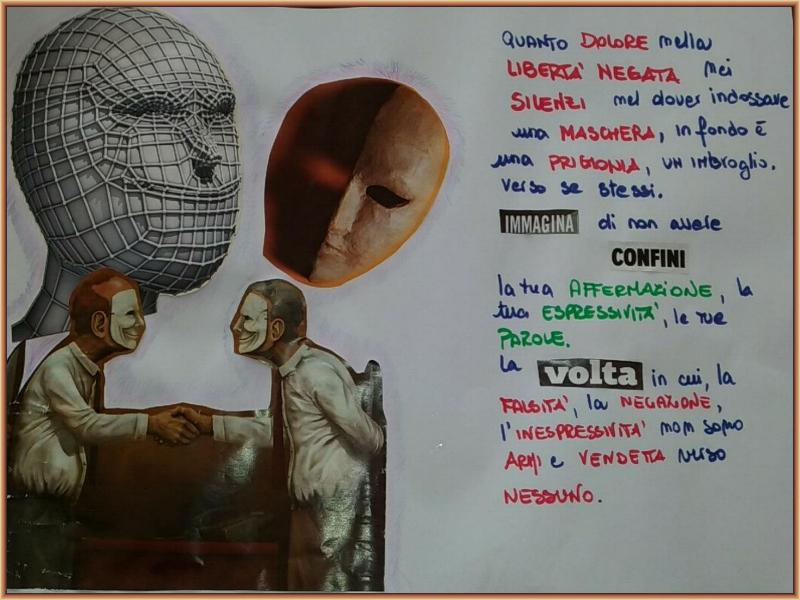 QUANTO DOLORE nella
LIBERTA' NEGATA nei
SILENZI nel dover indossare
una MASCHERA, in fondo è
una PRIGIONIA, UN IMBROGLIO.
verso se stessi.
IMMAGINA di non avere
CONFINI
la tua AFFERMAZIONE, la
tua ESPRESSIVITA', le tue
PAROLE.
La volta in cui, la
FALSITA', la NEGAZIONE,
l'INESPRESSIVITA' non sono
ARMI e VENDETTA verso
NESSUNO.